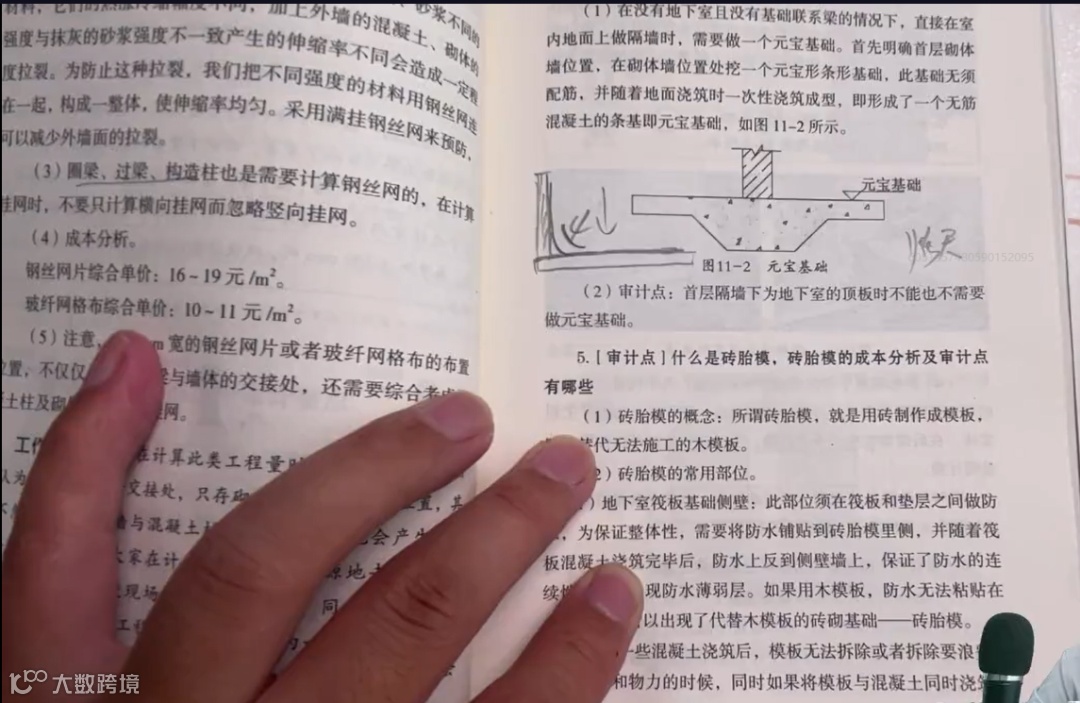 材料，它们的热胀冷缩幅度不同，加上外墙的混凝土、砌体的
强度与抹灰的砂浆强度不一致产生的伸缩率不同会造成一定程
度拉裂。为防止这种拉裂，我们把不同强度的材料用钢丝网连
在一起，构成一整体，使伸缩率均匀。采用满挂钢丝网来预防，
可以减少外墙面的拉裂。
（3）圈梁、过梁、构造柱也是需要计算钢丝网的，在计算
挂网时，不要只计算横向挂网而忽略竖向挂网。
（4）成本分析。
钢丝网片综合单价：16～19 元/m²。
玻纤网格布综合单价：10～11 元/m²。
（5）注意，
m 宽的钢丝网片或者玻纤网格布的布置
位置，不仅仅
梁与墙体的交接处，还需要综合考虑
土柱及砌
挂网。
在计算此类工程量时
认为
交接处，只存砌
墙与混凝土
会产生
大家在计
现场
同
工程
（1）在没有地下室且没有基础联系梁的情况下，直接在室
内地面上做隔墙时，需要做一个元宝基础。首先明确首层砌体
墙位置，在砌体墙位置处挖一个元宝形条形基础，此基础无须
配筋，并随着地面浇筑时一次性浇筑成型，即形成了一个无筋
混凝土的条基即元宝基础，如图 11-2 所示。
元宝基础
图11-2 元宝基础
（2）审计点：首层隔墙下为地下室的顶板时不能也不需要
做元宝基础。
5.［审计点］什么是砖胎模，砖胎模的成本分析及审计点
有哪些
（1）砖胎模的概念：所谓砖胎模，就是用砖制作成模板，
替代无法施工的木模板。
2）砖胎模的常用部位。
）地下室筏板基础侧壁：此部位须在筏板和垫层之间做防
，为保证整体性，需要将防水铺贴到砖胎模里侧，并随着筏
板混凝土浇筑完毕后，防水上反到侧壁墙上，保证了防水的连
续性
现防水薄弱层。如果用木模板，防水无法粘贴在
以出现了代替木模板的砖砌基础——砖胎模。
一些混凝土浇筑后，模板无法拆除或者拆除要浪费
和物力的时候，同时如果将模板与混凝土同时浇筑
大数跨境